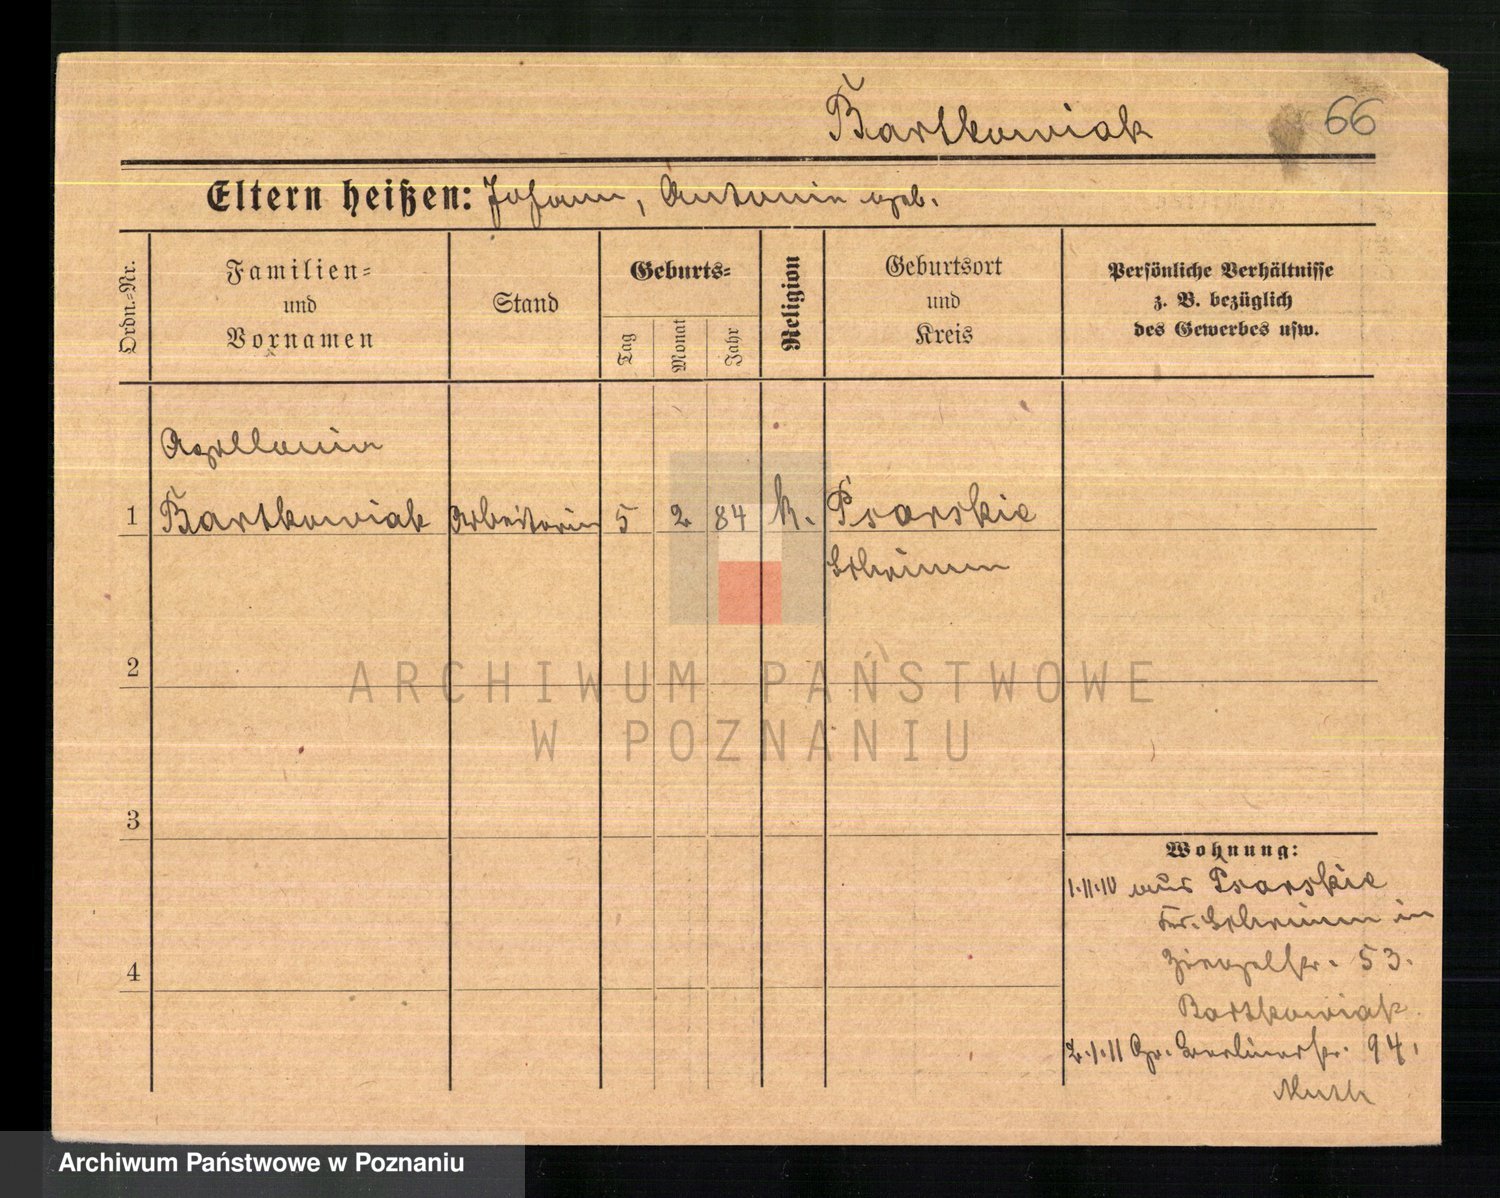 Bartkowiak
66
Eltern heißen: Johann, Antonie geb.
Ordn.=Nr.
Familien=
und
Vornamen
Stand
Geburts=
Tag
Monat
Jahr
Religion
Geburtsort
und
Kreis
Persönliche Verhältnisse
z. B. bezüglich
des Gewerbes usw.
Apollonia
1 Bartkowiak Arbeiterin 5 2 84 k. Psarskie
Schrimm
2
ARCHIWUM PAŃSTWOWE
W POZNANIU
3
Wohnung:
1.11.10 aus Psarskie
Kr. Schrimm in
4
Ziegelstr. 53.
Bartkowiak.
2.1.11 Gr. Berlinerstr. 94,
Muth
Archiwum Państwowe w Poznaniu